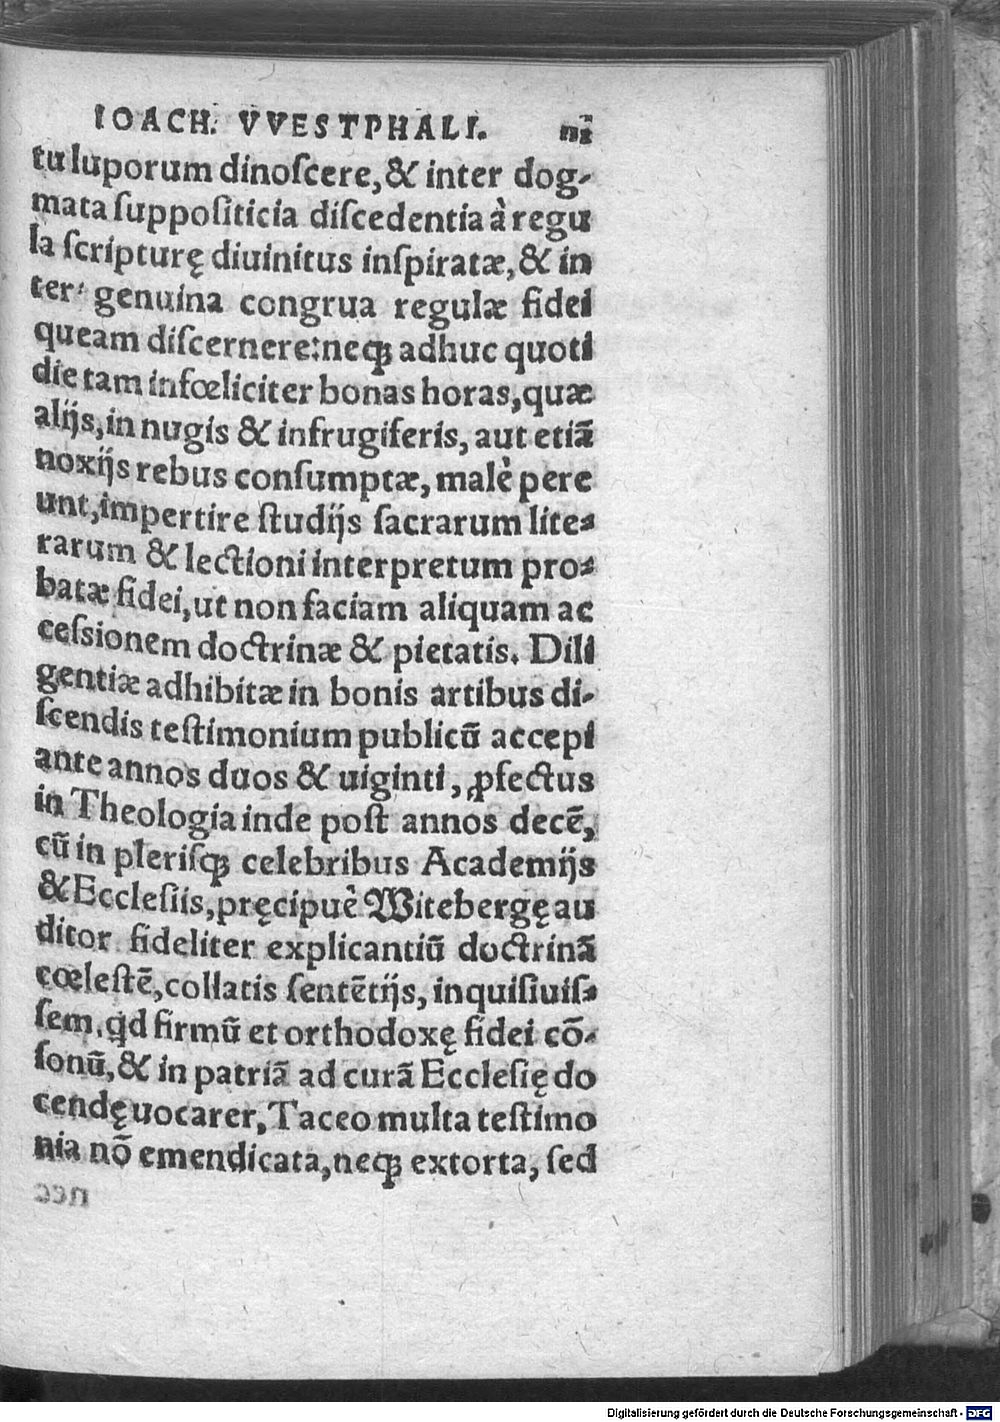 IOACH. VVESTPHALI.
tu luporum dinoſcere, & inter dog-
mata ſuppoſiticia diſcedentia à regu
la ſcripturę diuinitus inſpiratæ, & in
ter genuina congrua regulæ fidei
queam diſcernere: neq́ꝫ adhuc quoti
die tam infœliciter bonas horas, quæ
alijs, in nugis & infrugiferis, aut etiā
noxijs rebus conſumptæ, malè pere
unt, impertire ſtudijs ſacrarum lite-
rarum & lectioni interpretum pro-
batæ fidei, ut non faciam aliquam ac
ceſsionem doctrinæ & pietatis. Dili
gentiæ adhibitæ in bonis artibus di-
ſcendis teſtimonium publicū accepi
ante annos duos & uiginti, ꝓfectus
in Theologia inde poſt annos decē,
cū in pleriſqꝫ celebribus Academijs
& Eccleſiis, pręcipuè Witebergę au
ditor fideliter explicantiū doctrinā
cœleſtē, collatis ſentētijs, inquiſiuiſ-
ſem, qd firmū et orthodoxę fidei cō-
ſonū, & in patriā ad curā Eccleſię do
cendę uocarer, Taceo multa teſtimo
nia nō emendicata, neqꝫ extorta, ſed
nec
Digitalisierung gefördert durch die Deutsche Forschungsgemeinschaft - DFG